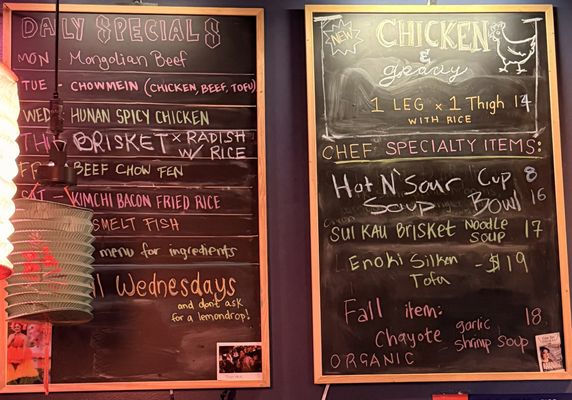 DAILY SPECIALS
MON - Mongolian Beef
TUE - CHOWMEIN (CHICKEN, BEEF, TOFU)
WED - HUNAN SPICY CHICKEN
BRISKET x RADISH
W/ RICE
BEEF CHOW FEN
SAT - KIMCHI BACON FRIED RICE
SMELT FISH
menu for ingredients
Wednesdays
and don't ask
for a lemondrop!
NEW
CHICKEN
&
gravy
1 LEG x 1 Thigh 14
WITH RICE
CHEF SPECIALTY ITEMS:
Hot N' Sour Cup 8
Soup Bowl 16
SUI KAU BRISKET NOODLE SOUP 17
Enoki Silken Tofu - $19
Fall item:
Chayote garlic shrimp soup 18
ORGANIC